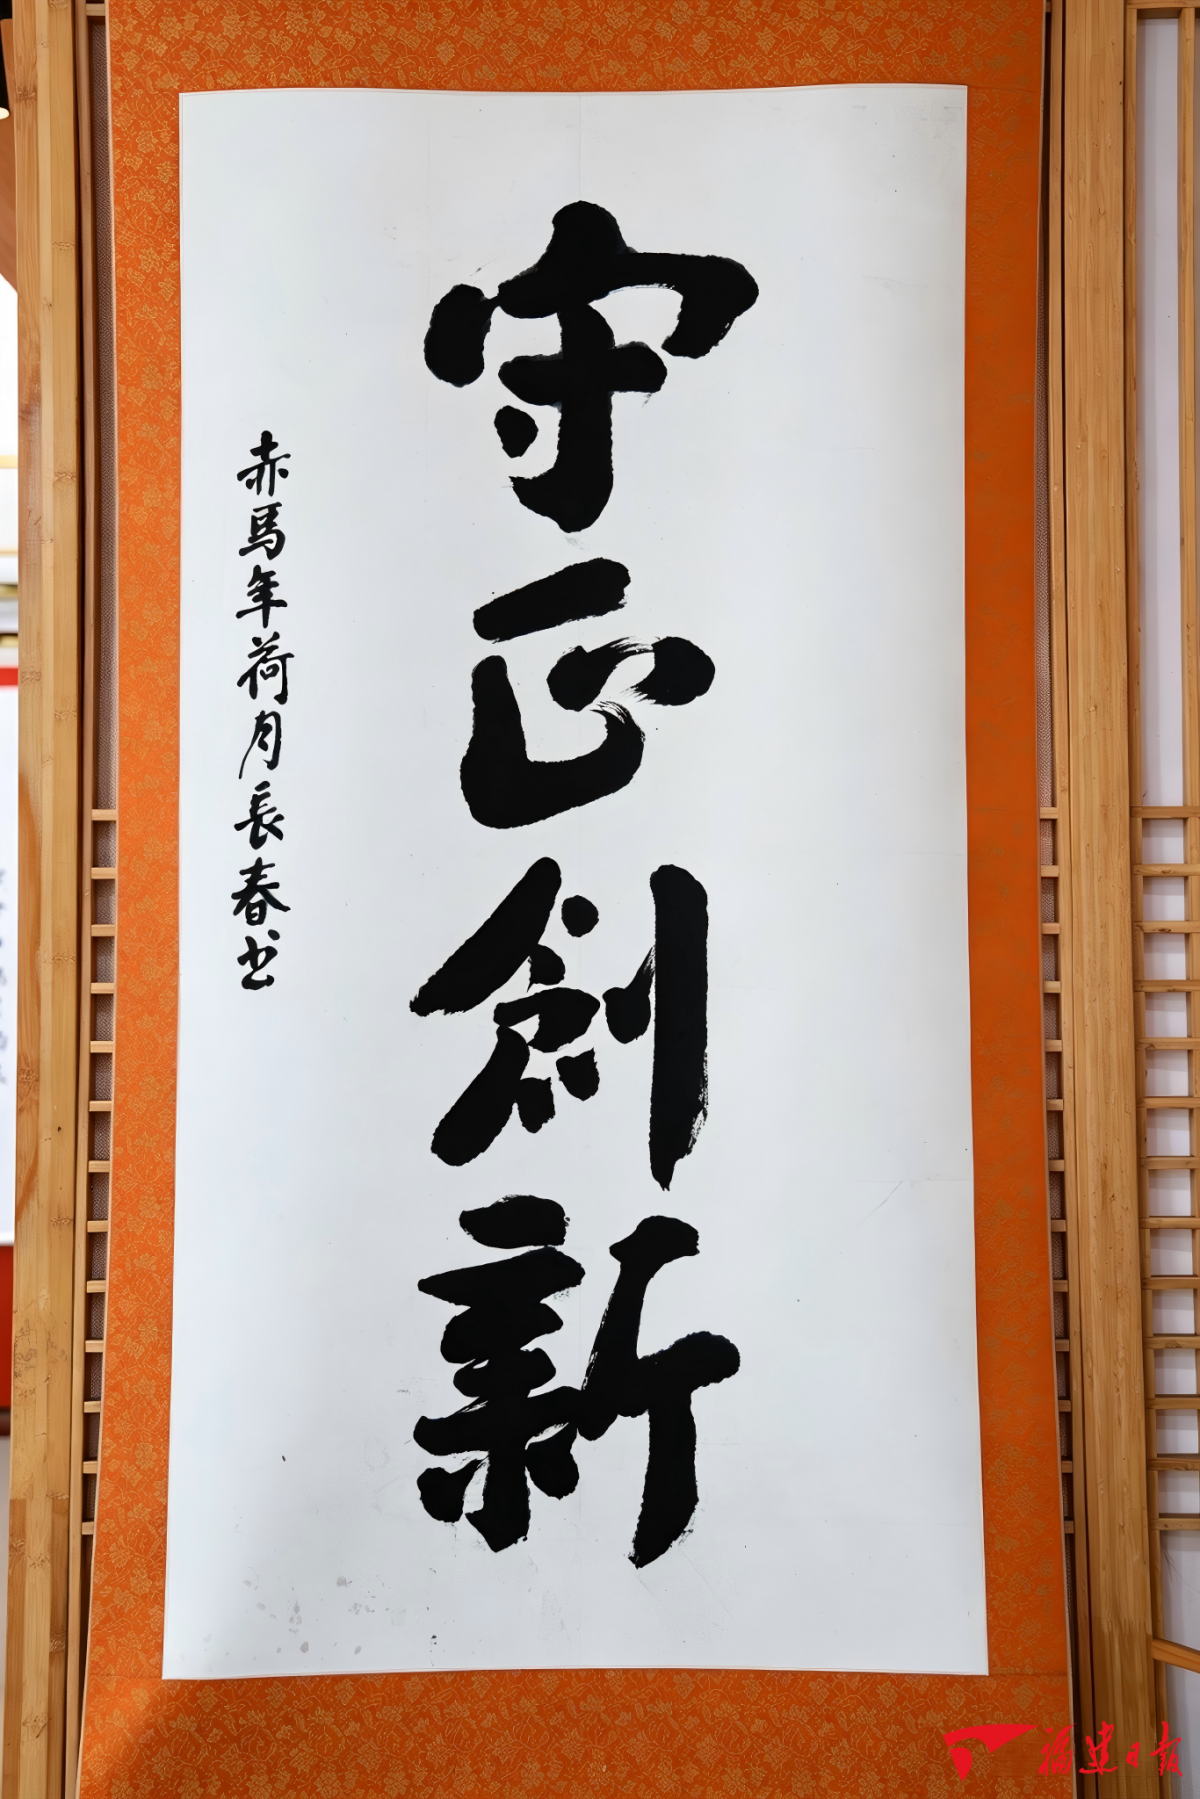 守正創新
赤馬年荷月長春书
福建日报